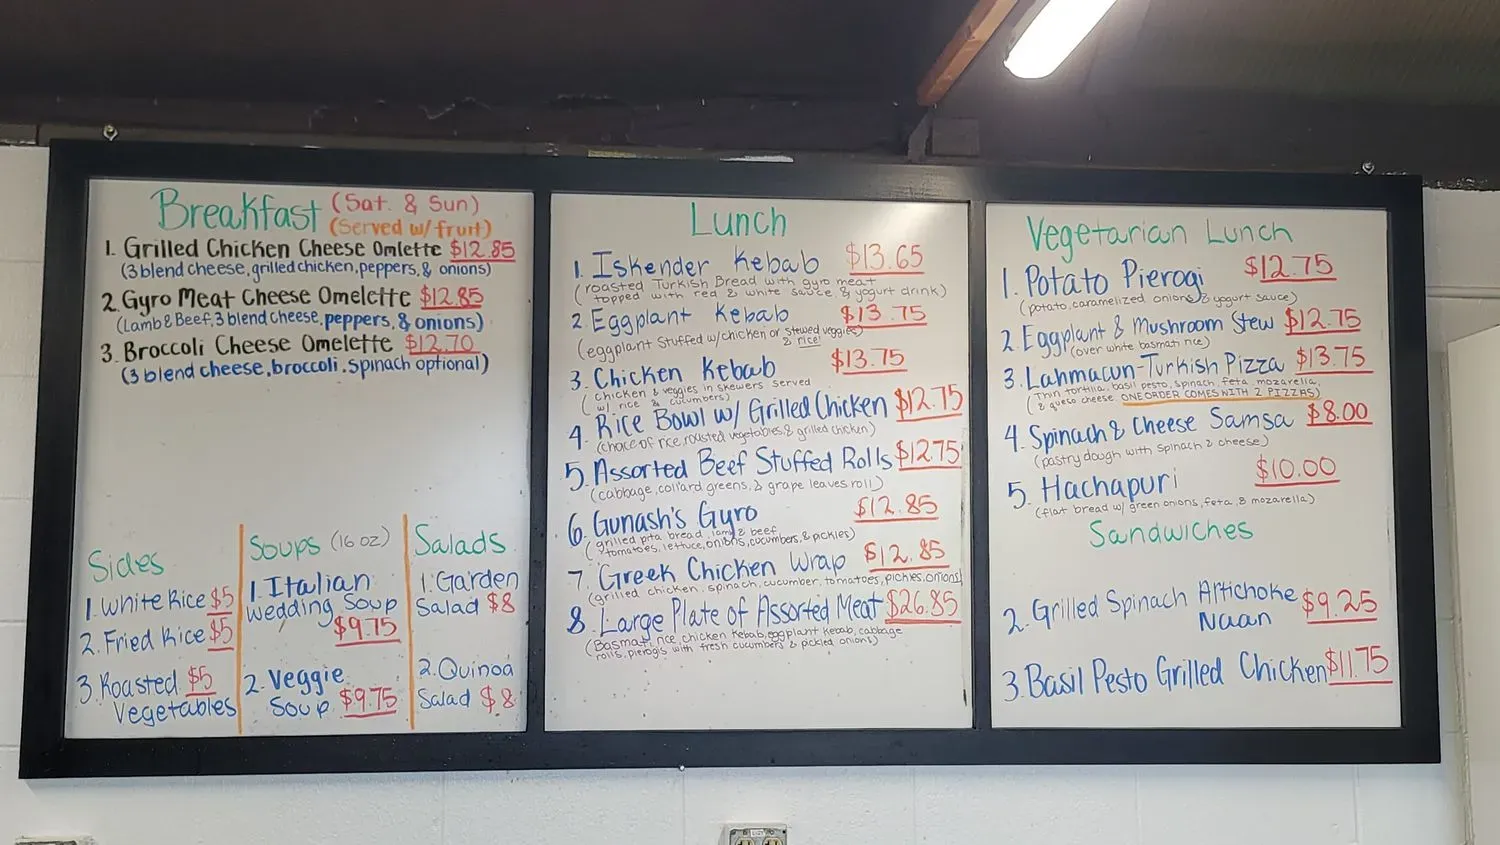 Breakfast (Sat. & Sun)
(Served w/fruit)
1. Grilled Chicken Cheese Omlette $12.85
(3 blend cheese, grilled chicken, peppers, & onions)
2. Gyro Meat Cheese Omelette $12.85
(Lamb & Beef, 3 blend cheese, peppers, & onions)
3. Broccoli Cheese Omelette $12.70
(3 blend cheese, broccoli, spinach optional)
Sides
1. White Rice $5
2. Fried Rice $5
3. Roasted $5
Vegetables
Soups (16 oz)
1. Italian
Wedding Soup
$9.75
2. Veggie
Soup $9.75
Salads
1. Garden
Salad $8
2. Quinoa
Salad $8
Lunch
1. Iskender Kebab $13.65
(roasted Turkish Bread with gyro meat
topped with red & white sauce, & yogurt drink)
2. Eggplant Kebab $13.75
(eggplant stuffed w/chicken or stewed veggies
& rice)
3. Chicken Kebab $13.75
(chicken & veggies in skewers served
w/ rice & cucumbers)
4. Rice Bowl w/ Grilled Chicken $12.75
(choice of rice, roasted vegetables, & grilled chicken)
5. Assorted Beef Stuffed Rolls $12.75
(cabbage, collard greens, & grape leaves roll)
6. Gunash's Gyro $12.85
(grilled pita bread, lamb & beef,
tomatoes, lettuce, onions, cucumbers, & pickles)
7. Greek Chicken Wrap $12.85
(grilled chicken, spinach, cucumber, tomatoes, pickles, onions)
8. Large Plate of Assorted Meat $26.85
(Basmati rice, chicken kebab, eggplant kebab, cabbage
rolls, pierogis with fresh cucumbers & pickled onions)
Vegetarian Lunch
1. Potato Pierogi $12.75
(potato, caramelized onions, & yogurt sauce)
2. Eggplant & Mushroom Stew $12.75
(over white basmati rice)
3. Lahmacun-Turkish Pizza $13.75
(Thin tortilla, basil pesto, spinach, feta, mozarella,
& queso cheese. ONE ORDER COMES WITH 2 PIZZAS)
4. Spinach & Cheese Samsa $8.00
(pastry dough with spinach & cheese)
5. Hachapuri $10.00
(flat bread w/ green onions, feta, & mozarella)
Sandwiches
2. Grilled Spinach Artichoke $9.25
Naan
3. Basil Pesto Grilled Chicken $11.75